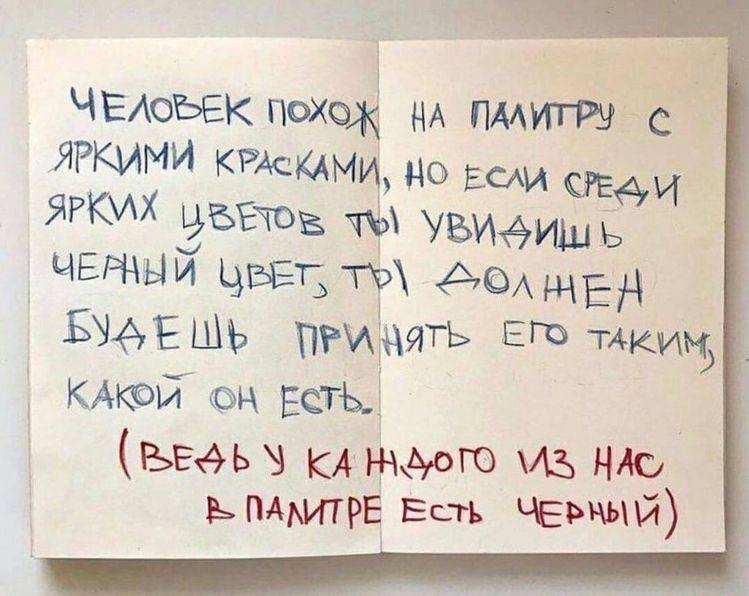 ЧЕЛОВЕК ПОХОЖ НА ПАЛИТРУ С
ЯРКИМИ КРАСКАМИ, НО ЕСЛИ СРЕДИ
ЯРКИХ ЦВЕТОВ ТЫ УВИДИШЬ
ЧЕРНЫЙ ЦВЕТ, ТЫ ДОЛЖЕН
БУДЕШЬ ПРИНЯТЬ ЕГО ТАКИМ,
КАКОЙ ОН ЕСТЬ.
(ВЕДЬ У КАЖДОГО ИЗ НАС
В ПАЛИТРЕ ЕСТЬ ЧЕРНЫЙ)